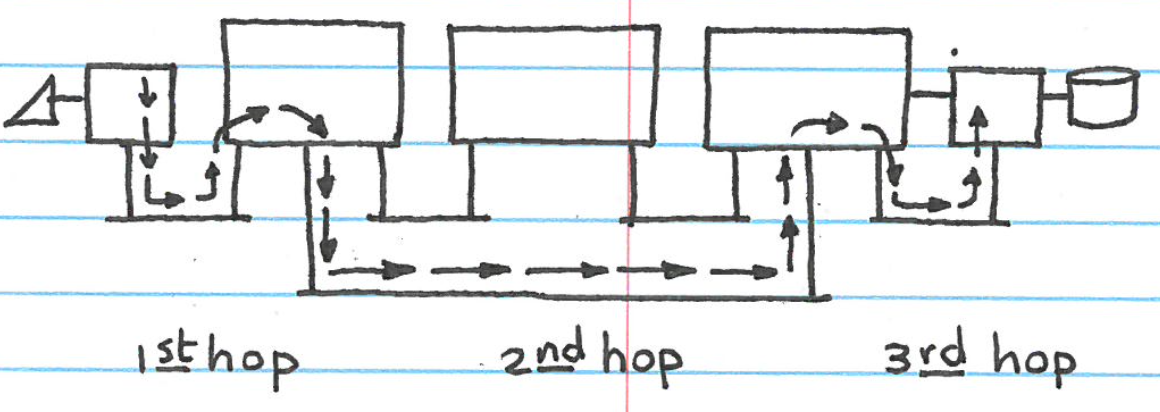 1st hop 2nd hop 3rd hop